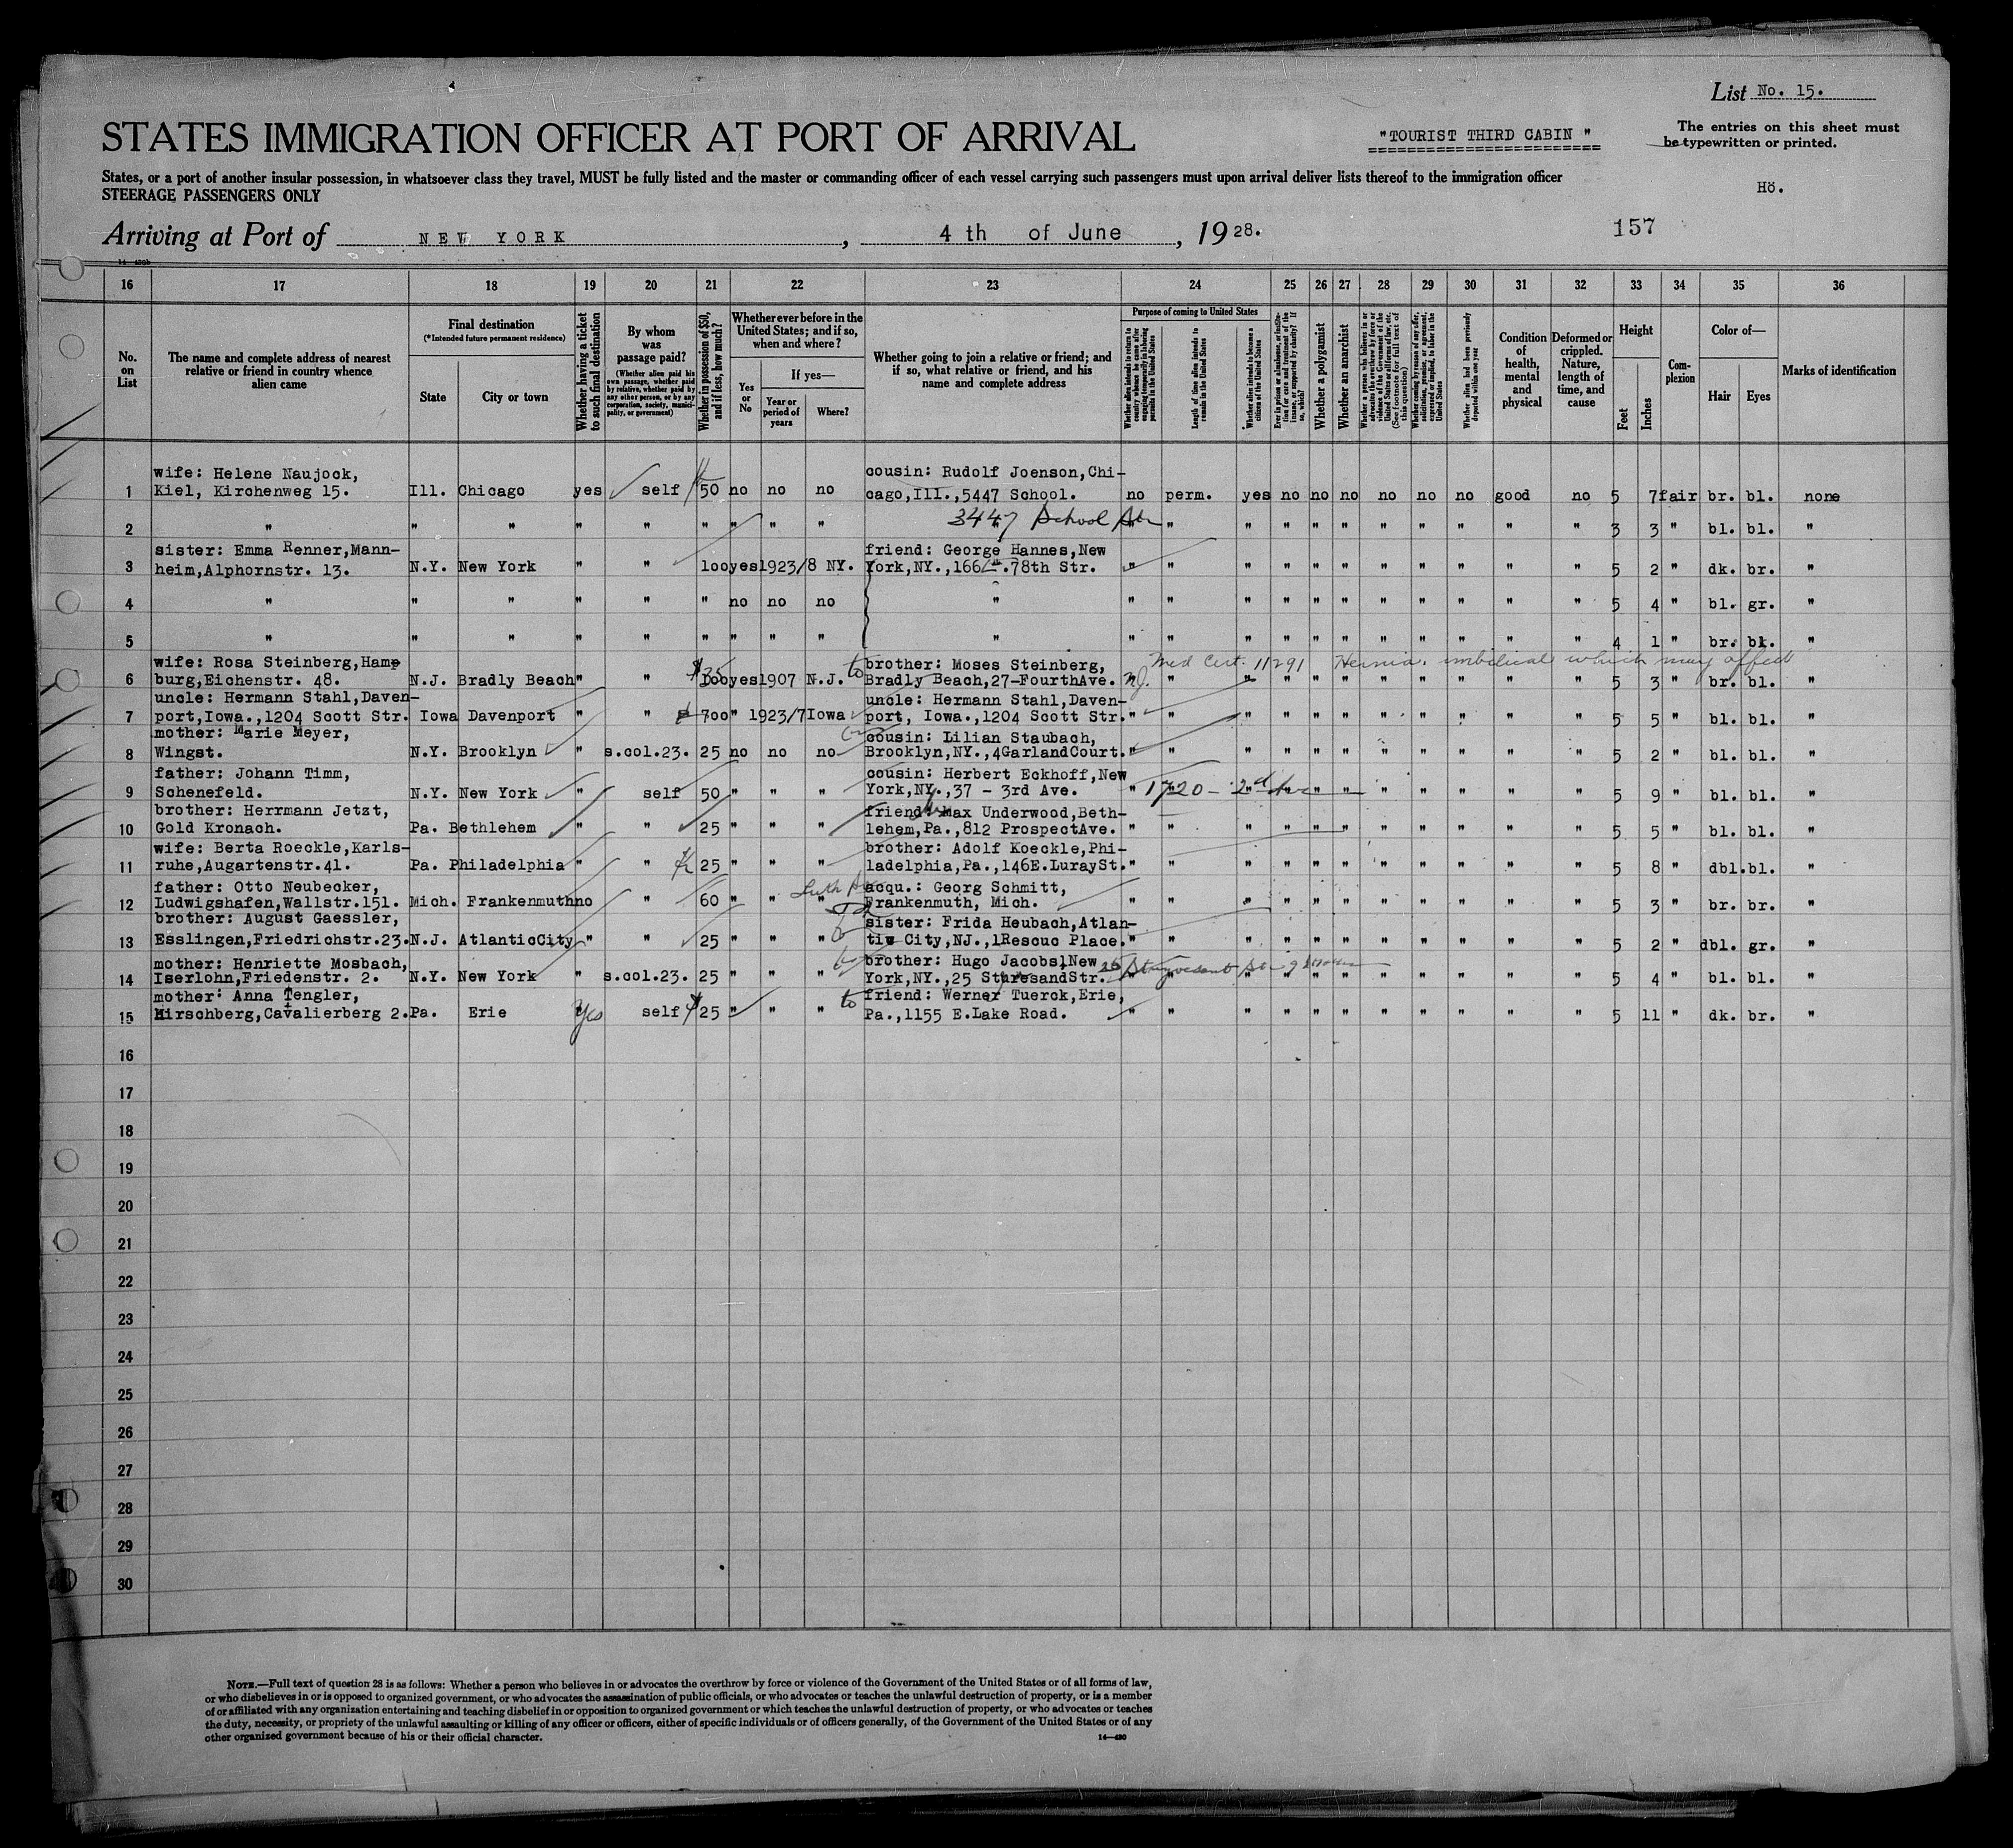 List No. 15.
STATES IMMIGRATION OFFICER AT PORT OF ARRIVAL
"TOURIST THIRD CABIN "
The entries on this sheet must
be typewritten or printed.
States, or a port of another insular possession, in whatsoever class they travel, MUST be fully listed and the master or commanding officer of each vessel carrying such passengers must upon arrival deliver lists thereof to the immigration officer
STEERAGE PASSENGERS ONLY
Hö.
Arriving at Port of NEW YORK , 4 th of June , 19 28.
157
16 17 18 19 20 21 22 23 24 25 26 27 28 29 30 31 32 33 34 35 36
No. on List
The name and complete address of nearest relative or friend in country whence alien came
Final destination
(*Intended future permanent residence)
State
City or town
Whether having a ticket to such final destination
By whom was passage paid?
(Whether alien paid his own passage, whether paid by relative, whether paid by any other person, or by any corporation, society, municipality, or government)
Whether in possession of $50, and if less, how much?
Whether ever before in the United States; and if so, when and where?
Yes or No
If yes—
Year or period of years
Where?
Whether going to join a relative or friend; and if so, what relative or friend, and his name and complete address
Purpose of coming to United States
Whether alien intends to return to country whence he came after engaging temporarily in laboring pursuits in the United States
Length of time alien intends to remain in the United States
Whether alien intends to become a citizen of the United States
Whether a polygamist
Whether an anarchist
Whether alien had been previously deported within one year
Condition of health, mental and physical
Deformed or crippled. Nature, length of time, and cause
Height
Feet
Inches
Complexion
Color of—
Hair
Eyes
Marks of identification
wife: Helene Naujock, cousin: Rudolf Joenson,Chi-
1 Kiel, Kirchenweg 15. Ill. Chicago yes self 50 no no no cago,Ill.,5447 School. no perm. yes no no no no no no good no 5 7 fair br. bl. none
3447 School Str
2 " " " " " " " " " " " " " " " " " " " " " 3 3 " bl. bl. "
sister: Emma Renner,Mann- friend: George Hannes,New
3 heim,Alphornstr. 13. N.Y. New York " " 100 yes 1923/8 NY. York,NY.,166 .78th Str. " " " " " " " " " " " 5 2 " dk. br. "
4 " " " " " " no no no " " " " " " " " " " " " 5 4 " bl. gr. "
5 " " " " " " " " " " " " " " " " " " " " " 4 1 " br. bl. "
wife: Rosa Steinberg,Ham- to brother: Moses Steinberg, Med Cert. 11291 Hernia, umbilical which may affect
6 burg,Eichenstr. 48. N.J. Bradly Beach " " 100 yes 1907 N.J. Bradly Beach,27-FourthAve. " " " " " " " " " " 5 3 " br. bl. "
uncle: Hermann Stahl,Daven- uncle: Hermann Stahl,Daven-
7 port,Iowa.,1204 Scott Str. Iowa Davenport " " 700 " 1923/7 Iowa port, Iowa.,1204 Scott Str. " " " " " " " " " " " 5 5 " bl. bl. "
mother: Marie Meyer, cousin: Lilian Staubach,
8 Wingst. N.Y. Brooklyn " s.col.23. 25 no no no Brooklyn,NY.,4GarlandCourt. " " " " " " " " " " " 5 2 " bl. bl. "
father: Johann Timm, cousin: Herbert Eckhoff,New
9 Schenefeld. N.Y. New York " self 50 " " " York,NY.,37 - 3rd Ave. " 1720 - 2d Ave " " " " " " " " 5 9 " bl. bl. "
brother: Herrmann Jetzt, friend: Max Underwood,Beth-
10 Gold Kronach. Pa. Bethlehem " " 25 " " " lehem,Pa.,812 ProspectAve. " " " " " " " " " " " 5 5 " bl. bl. "
wife: Berta Roeckle,Karls- brother: Adolf Koeckle,Phi-
11 ruhe,Augartenstr.41. Pa. Philadelphia " " 25 " " " ladelphia,Pa.,146E.LuraySt. " " " " " " " " " " " 5 8 " dbl. bl. "
father: Otto Neubecker, acqu.: Georg Schmitt,
12 Ludwigshafen,Wallstr.151. Mich. Frankenmuth no " 60 " " " Frankenmuth, Mich. " " " " " " " " " " 5 3 " br. br. "
brother: August Gaessler, sister: Frida Heubach,Atlan-
13 Esslingen,Friedrichstr.23. N.J. AtlanticCity " " 25 " " " tic City,NJ.,1Rescuc Place. " " " " " " " " " " " 5 2 " dbl. gr. "
mother: Henriette Mosbach, brother: Hugo Jacobs,New
14 Iserlohn,Friedenstr. 2. N.Y. New York " s.col.23. 25 " " " York,NY., 25 SturesandStr. 26 Stuyvesant Str " " " " " " " " " " " 5 4 " bl. bl. "
mother: Anna Tengler, to friend: Werner Tuerck,Erie,
15 Hirschberg,Cavalierberg 2. Pa. Erie Yes self $ 25 " " " Pa.,1155 E.Lake Road. " " " " " " " " " " " 5 11 " dk. br. "
16
17
18
19
20
21
22
23
24
25
26
27
28
29
30
NOTE.—Full text of question 28 is as follows: Whether a person who believes in or advocates the overthrow by force or violence of the Government of the United States or of all forms of law,
or who disbelieves in or is opposed to organized government, or who advocates the assassination of public officials, or who advocates or teaches the unlawful destruction of property, or is a member
of or affiliated with any organization entertaining and teaching disbelief in or opposition to organized government or which teaches the unlawful destruction of property, or who advocates or teaches
the duty, necessity, or propriety of the unlawful assaulting or killing of any officer or officers, either of specific individuals or of officers generally, of the Government of the United States or of any
other organized government because of his or their official character.
14—430